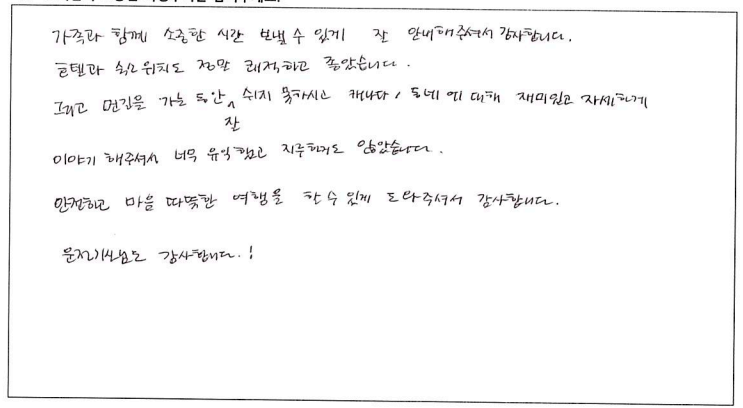 가족과 함께 소중한 시간 보낼 수 있게 잘 안내해주셔서 감사합니다.
호텔과 숙소위치도 정말 쾌적하고 좋았습니다.
그리고 먼길을 가는 동안 잘 쉬지 못하시고 캐나다, 동네에 대해 재미있고 자세하게
이야기 해주셔서 너무 유익했고 지루하지도 않았습니다.
안전하고 마음 따뜻한 여행을 할 수 있게 도와주셔서 감사합니다.
운전기사님도 감사합니다.!